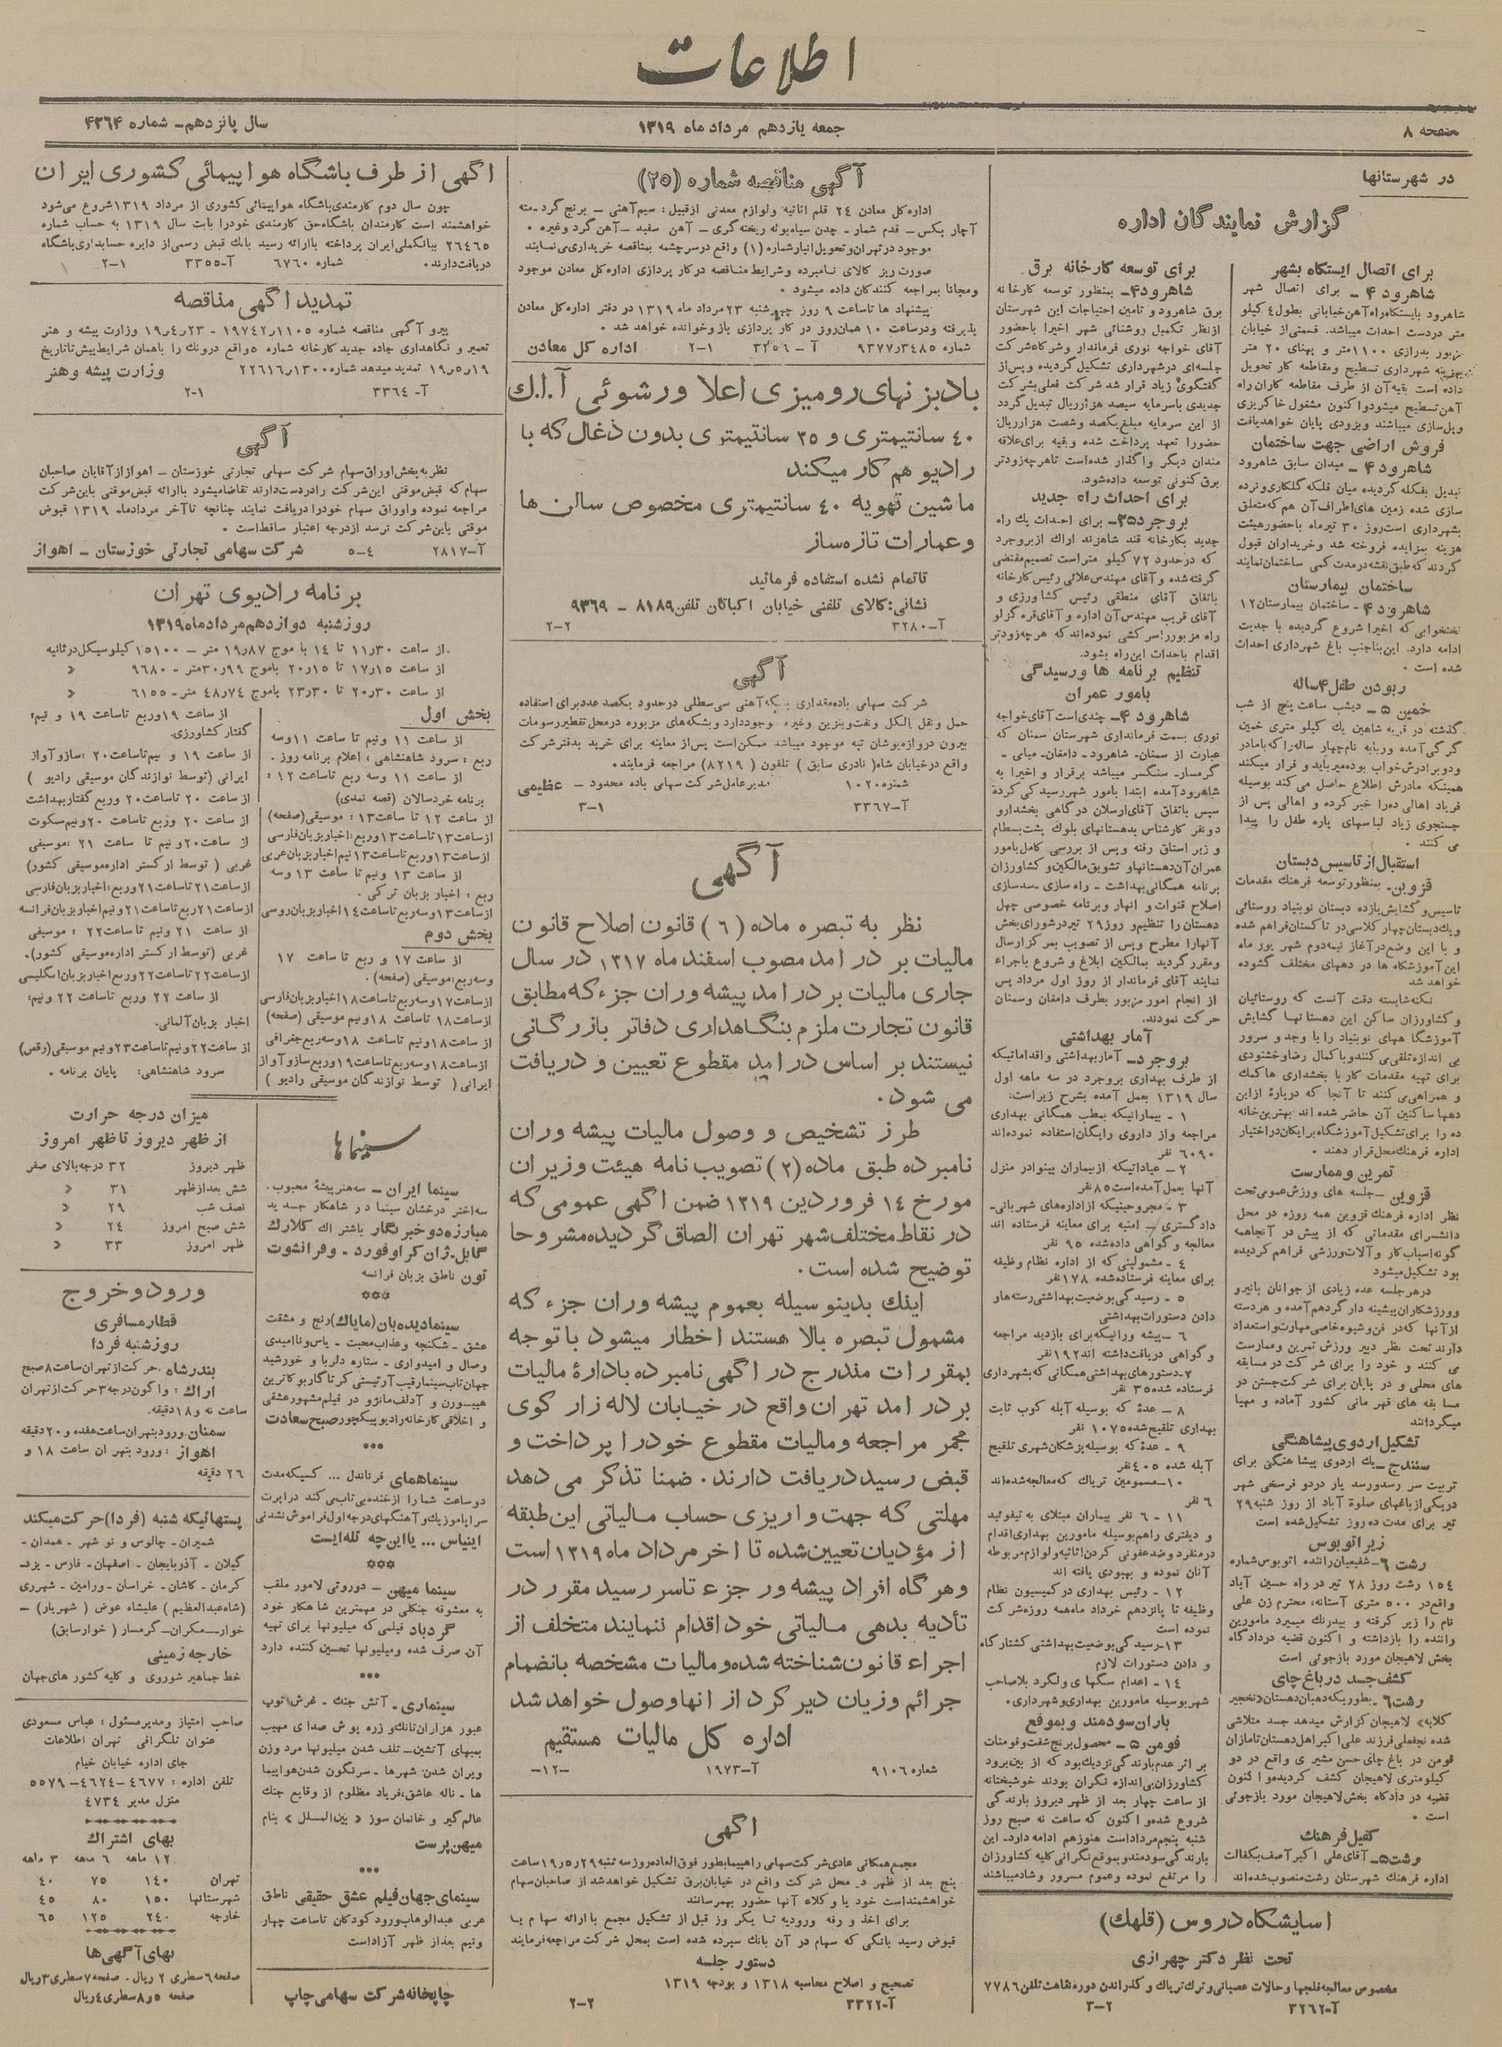 اطلاعات
صفحه ۸
جمعه یازدهم مرداد ماه ۱۳۱۹
سال پانزدهم- شماره ۴۳۶۴
در شهرستانها
گزارش نمایندگان اداره
برای اتصال ایستگاه بشهر
شاهرود ۴ - برای اتصال شهر
شاهرود بایستگاه راه آهن خیابانی بطول ۴ کیلو
متر دردست احداث میباشد. قسمتی از خیابان
مزبور بدرازی ۱۱۰۰ متر و پهنای ۲۰ متر
بهزینه شهرداری تسطیح و مقاطعه کار تحویل
داده است بقیه آن از طرف مقاطعه کاران راه
آهن تسطیح میشود و اکنون مشغول خاکریزی
و پل سازی میباشند و بزودی پایان خواهد یافت
فروش اراضی جهت ساختمان
شاهرود ۴ - میدان سابق شاهرود
تبدیل بفلکه گردیده میان فلکه گلکاری و نرده
سازی شده زمین های اطراف آن هم که متعلق
بشهرداری است روز ۳۰ تیر ماه با حضور هیئت
هزینه بمزایده فروخته شد و خریداران قبول
کردند که طبق نقشه در مدت کمی ساختمان نمایند
ساختمان بیمارستان
شاهرود ۴ - ساختمان بیمارستان ۱۲
تختخوابی که اخیرا شروع گردیده با جدیت
ادامه دارد. این بنا جنب باغ شهرداری احداث
شده است.
ربودن طفل ۴ ساله
خمین ۵ - دیشب ساعت پنج از شب
گذشته در قریه شاهین یک کیلو متری خمین
گرگی آمده و ربابه نام چهار ساله را که با مادر
و دو برادرش خواب بوده میرباید و فرار میکند
همینکه مادرش اطلاع حاصل می کند بوسیله
فریاد اهالی ده را خبر کرده و اهالی پس از
جستجوی زیاد لباسهای پاره طفل را پیدا
می کنند.
استقبال از تاسیس دبستان
قزوین- بمنظور توسعه فرهنگ مقدمات
تاسیس و گشایش یازده دبستان نوبنیاد روستائی
و یک دبستان چهار کلاسی در تاکستان فراهم شده
و با این وضع در آغاز نیمه دوم شهر یور ماه
این آموزشگاه ها در دههای مختلف گشوده
خواهد شد
نکته شایسته دقت آنست که روستائیان
و کشاورزان ساکن این دهستانها گشایش
آموزشگاه ههای نوبنیاد را با وجد و سرور
بی اندازه تلقی می کنند و با کمال رضا و خشنودی
برای تهیه مقدمات کار با بخشداری ها کمک
و همراهی می کنند تا آنجا که درباره از این
دهها ساکنین آن حاضر شده اند بهترین خانه
ده را برای تشکیل آموزشگاه برایگان در اختیار
اداره فرهنگ محل قرار دهند.
تمرین و ممارست
قزوین - جلسه های ورزش عمومی تحت
نظر اداره فرهنگ قزوین همه روزه در محل
دانشسرای مقدماتی که از پیش در آنجا همه
گونه اسباب کار و آلات ورزشی فراهم کردیده
بود تشکیل میشود
درهر جلسه عده زیادی از جوانان با نیرو
و ورزشکاران پیشینه دار گرد هم آمده و هر دسته
از آنها که در فن و شیوه خاصی مهارت و استعداد
دارند تحت نظر دبیر ورزش تمرین و ممارست
می کنند و خود را برای شرکت در مسابقه
های محلی و در پایان برای شرکت جستن در
مسابقه های قهرمانی کشور آماده و مهیا
میگردانند
تشکیل اردوی پیشاهنگی
سنندج - یک اردوی پیشاهنگی برای
تربیت سر رسد و رسد یار در دو فرسخی شهر
دریکی از باغهای صلوة آباد از روز شنبه ۲۹
تیر برای مدت ده روز تشکیل شده است
زیر اتوبوس
رشت ۶ - شفیعیان راننده اتوبوس شماره
۱۵۴ رشت روز ۲۸ تیر در راه حسین آباد
واقع در ۵۰۰ متری آستانه، محترم زن علی
نام را زیر گرفته و بیدرنگ میمیرد مامورین
راننده را بازداشته و اکنون قضیه در دادگاه
بخش لاهیجان مورد بازجوئی است
کشف جسد در باغ چای
رشت ۶ - بطوریکه دهبان دهستان «نخجیر
کلایه» لاهیجان گزارش میدهد جسد متلاشی
شده نجفعلی فرزند علی اکبر اهل دهستان تامازان
فومن در باغ چای حسن مشیری واقع در دو
کیلومتری لاهیجان کشف گردیده و اکنون
قضیه در دادگاه بخش لاهیجان مورد بازجوئی
است.
کفیل فرهنگ
رشت ۵ - آقای علی اکبر آصف بکفالت
اداره فرهنگ شهرستان رشت منصوب شده اند
برای توسعه کارخانه برق
شاهرود ۴ - بمنظور توسعه کارخانه
برق شاهرود و تامین احتیاجات این شهرستان
از نظر تکمیل روشنائی شهر اخیرا با حضور
آقای خواجه نوری فرماندار و شرکاء شرکت
جلسه ای در شهرداری تشکیل گردیده و پس از
گفتگوی زیاد قرار شد شرکت فعلی بشرکت
جدیدی با سرمایه سیصد هزار ریال تبدیل گردد
از این سرمایه مبلغ یکصد و شصت هزار ریال
حضورا تعهد پرداخت شده و بقیه برای علاقه
مندان دیگر واگذار شده است تا هر چه زودتر
برق کنونی توسعه داده شود.
برای احداث راه جدید
بروجرد ۲۵ - برای احداث یک راه
جدید بکارخانه قند شاهزند اراک از بروجرد
که در حدود ۷۲ کیلو متر است تصمیم مقتضی
گرفته شده و آقای مهندس علائی رئیس کارخانه
باتفاق آقای منطقی رئیس کشاورزی و
آقای قریب مهندس آن اداره و آقای قره گزلو
راه مزبور را سرکشی نموده اند که هر چه زودتر
اقدام باحداث این راه بشود.
تنظیم برنامه ها و رسیدگی
بامور عمران
شاهرود ۴ - چندی است آقای خواجه
نوری بسمت فرمانداری شهرستان سمنان که
عبارت از سمنان- شاهرود- دامغان- میامی-
گرمسار- سنگسر میباشد برقرار و اخیرا به
شاهرود آمده ابتدا بامور شهر رسیدگی کرده
سپس باتفاق آقای ارسلان درگاهی بخشدار و
دو نفر کارشناس بدهستانهای بلوک پشت بسطام
و زیر استاق رفته و پس از بررسی کامل بامور
عمران آن دهستانها و تشویق مالکین و کشاورزان
برنامه همگانی بهداشت - راه سازی - سد سازی
اصلاح قنوات و انهار و برنامه خصوصی چهل
دهستان را تنظیم و روز ۲۹ تیر در شورای بخش
آنها را مطرح و پس از تصویب بمرکز ارسال
و مقرر گردید بمالکین ابلاغ و شروع باجراء
نمایند آقای فرماندار از روز اول مرداد پس
از انجام امور مزبور بطرف دامغان و سمنان
حرکت نمودند.
آمار بهداشتی
بروجرد- آمار بهداشتی و اقداماتیکه
از طرف بهداری بروجرد در سه ماهه اول
سال ۱۳۱۹ بعمل آمده بشرح زیر است:
۱ - بیمارانیکه بمطب همگانی بهداری
مراجعه و از داروی رایگان استفاده نموده اند
۶۰۹۰ نفر
۲ - عیاداتیکه از بیماران بینوا در منزل
آنها بعمل آمده است ۸۵ نفر
۳ - مجروحینیکه از اداره های شهربانی-
دادگستری - امنیه برای معاینه فرستاده اند
معالجه و گواهی داده شده ۹۵ نفر
۴ - مشمولینی که از اداره نظام وظیفه
برای معاینه فرستاده شده ۱۷۸ نفر
۵ - رسیدگی بوضعیت بهداشتی رسته ها و
دادن دستورات بهداشتی
۶ - پیشه ورانیکه برای بازدید مراجعه
و گواهی دریافت داشته اند ۱۹۲ نفر
۷ - دستورهای بهداشتی همگانی که بشهرداری
فرستاده شده ۳۵ نفر
۸ - عده که بوسیله آبله کوب ثابت
بهداری تلقیح شده ۱۰۷۵ نفر
۹ - عده که بوسیله پزشکان شهری تلقیح
آبله شده ۴۰۵ نفر
۱۰ - مسمومین تریاک که معالجه شده اند
۶ نفر
۱۱ - ۶ نفر بیماران مبتلای به تیفوئید
و دیفتری را هم بوسیله مامورین بهداری اقدام
درمنفرد و ضدعفونی کردن اثاثیه و لوازم مربوطه
آنان نموده و بهبودی یافته اند
۱۲ - رئیس بهداری در کمیسیون نظام
وظیفه تا پانزدهم خرداد ماه همه روزه شرکت
نموده است
۱۳ - رسیدگی بوضعیت بهداشتی کشتارگاه
و دادن دستورات لازم
۱۴ - اعدام سگهای ولگرد بلاصاحب
شهر بوسیله مامورین بهداری و شهرداری.
باران سودمند و بموقع
فومن ۵ - محصول برنج شفت و فومنات
بر اثر عدم بارندگی نزدیک بود که از بین برود
کشاورزان بی اندازه نگران بودند خوشبختانه
از ساعت چهار بعد از ظهر دیروز بارندگی
شروع شده و اکنون که ساعت نه صبح روز
شنبه پنجم مرداد است هنوز هم ادامه دارد. این
بارندگی سودمند و بموقع نگرانی کلیه کشاورزان
را مرتفع نموده و عموم مسرور و شاد میباشند
اسایشگاه دروس (قلهک)
تحت نظر دکتر چهرازی
مخصوص معالجه فلجها و حالات عصبانی و ترک تریاک و گذراندن دوره نقاهت تلفن ۷۷۸۶
آ-۳۲۶۲ ۲-۳
آگهی مناقصه شماره (۲۵)
اداره کل معادن ۲۴ قلم اثاثیه و لوازم معدنی از قبیل: سیم آهنی - برنج گرد - مته
آچار بکس - قدم شمار - چدن سیاه بوله ریخته گری - آهن سفید - آهن گرد و غیره.
موجود در تهران و تحویل انبار شماره (۱) واقع در سرچشمه بمناقصه خریداری می نمایند
صورت ریز کالای نامبرده و شرایط مناقصه در کار پردازی اداره کل معادن موجود
و مجانا بمراجعه کنندگان داده میشود.
پیشنهاد ها تا ساعت ۹ روز چهارشنبه ۲۳ مرداد ماه ۱۳۱۹ در دفتر اداره کل معادن
پذیرفته و در ساعت ۱۰ همان روز در کار پردازی باز و خوانده خواهد شد.
شماره ۹۳۷۷٫۳۴۸۵ آ - ۳۳۵۶ ۱-۲ اداره کل معادن
بادبزنهای رومیزی اعلا ورشوئی آ.ا.ک
۴۰ سانتیمتری و ۳۵ سانتیمتری بدون ذغال که با
رادیو هم کار میکند
ماشین تهویه ۴۰ سانتیمتری مخصوص سالن ها
و عمارات تازه ساز
تا تمام نشده استفاده فرمائید
نشانی: کالای تلفنی خیابان اکباتان تلفن ۸۱۸۹ - ۹۳۶۹
آ-۳۲۸۰ ۲-۲
آگهی
شرکت سهامی باده مقداری بشکه آهنی سی سطلی در حدود یکصد عدد برای استفاده
حمل و نقل الکل و نفت و بنزین و غیره موجود دارد و بشکه های مزبوره در محل تقطیر رسومات
بیرون دروازه یوشان تپه موجود میباشد ممکن است پس از معاینه برای خرید بدفتر شرکت
واقع در خیابان شاه (نادری سابق) تلفون (۸۲۱۹) مراجعه فرمایند.
شماره ۱۰۲۰ مدیر عامل شرکت سهامی باده محدود - عظیمی
آ-۳۳۶۷ ۱-۳
آگهی
نظر به تبصره ماده (۶) قانون اصلاح قانون
مالیات بر در امد مصوب اسفند ماه ۱۳۱۷ در سال
جاری مالیات بر در امد پیشه وران جزء که مطابق
قانون تجارت ملزم بنگاهداری دفاتر بازرگانی
نیستند بر اساس در امد مقطوع تعیین و دریافت
می شود.
طرز تشخیص و وصول مالیات پیشه وران
نامبرده طبق ماده (۲) تصویب نامه هیئت وزیران
مورخ ۱۴ فروردین ۱۳۱۹ ضمن اگهی عمومی که
در نقاط مختلف شهر تهران الصاق گردیده مشروحا
توضیح شده است.
اینک بدینوسیله بعموم پیشه وران جزء که
مشمول تبصره بالا هستند اخطار میشود با توجه
بمقررات مندرج در اگهی نامبرده باداره مالیات
بر در امد تهران واقع در خیابان لاله زار کوی
مجمر مراجعه و مالیات مقطوع خود را پرداخت و
قبض رسید دریافت دارند. ضمنا تذکر می دهد
مهلتی که جهت واریزی حساب مالیاتی این طبقه
از مؤدیان تعیین شده تا اخر مرداد ماه ۱۳۱۹ است
و هر گاه افراد پیشه ور جزء تا سر رسید مقرر در
تأدیه بدهی مالیاتی خود اقدام ننمایند متخلف از
اجراء قانون شناخته شده و مالیات مشخصه بانضمام
جرائم و زیان دیر کرد از انها وصول خواهد شد
اداره کل مالیات مستقیم
شماره ۹۱۰۶ آ-۱۹۷۳ -۱۲-
اگهی
مجمع همگانی عادی شرکت سهامی راهپیما بطور فوق العاده روز سه شنبه ۱۹٫۵٫۲۹ ساعت
پنج بعد از ظهر در محل شرکت واقع در خیابان برق تشکیل خواهد شد از صاحبان سهام
خواهشمند است خود یا وکلاء آنها حضور بهمرسانند
برای اخذ ورقه ورودیه تا یکروز قبل از تشکیل مجمع با ارائه سهام یا
قبوض رسید بانکی که سهام در آن بانک سپرده شده است بمحل شرکت مراجعه فرمایند
دستور جلسه
تصحیح و اصلاح محاسبه ۱۳۱۸ و بودجه ۱۳۱۹
آ-۳۳۲۲ ۲-۲
اگهی از طرف باشگاه هواپیمائی کشوری ایران
چون سال دوم کارمندی باشگاه هواپیمائی کشوری از مرداد ۱۳۱۹ شروع می شود
خواهشمند است کارمندان باشگاه حق کارمندی خود را بابت سال ۱۳۱۹ به حساب شماره
۲۶۴۶۵ ببانک ملی ایران پرداخته با ارائه رسید بانک قبض رسمی از دایره حسابداری باشگاه
دریافت دارند. شماره ۶۷۶۰ آ-۳۳۵۵ ۱-۲
تمدید اگهی مناقصه
پیرو آگهی مناقصه شماره ۱۹۷۴۲٫۱۱۰۵ - ۱۹٫۴٫۲۳ وزارت پیشه و هنر
تعمیر و نگاهداری جاده جدید کارخانه شماره ۵ واقع درونک را باهمان شرایط پیش تا تاریخ
۱۹٫۵٫۱۹ تمدید میدهد شماره ۲۲۶۱۶٫۱۳۰۰ وزارت پیشه و هنر
آ-۳۳۶۴ ۱-۲
آگهی
نظر به پخش اوراق سهام شرکت سهامی تجارتی خوزستان - اهواز از آقایان صاحبان
سهام که قبض موقتی این شرکت را در دست دارند تقاضا میشود با ارائه قبض موقتی باین شرکت
مراجعه نموده و اوراق سهام خود را دریافت نمایند چنانچه تا آخر مرداد ماه ۱۳۱۹ قبوض
موقتی باین شرکت نرسد از درجه اعتبار ساقط است.
آ-۲۸۱۷ ۴-۵ شرکت سهامی تجارتی خوزستان - اهواز
برنامه رادیوی تهران
روز شنبه دوازدهم مرداد ماه ۱۳۱۹
از ساعت ۱۱٫۳۰ تا ۱۴ با موج ۱۹٫۸۷ متر - ۱۵۱۰۰ کیلو سیکل در ثانیه
از ساعت ۱۷٫۱۵ تا ۲۰٫۱۵ با موج ۳۰٫۹۹ متر - ۹۶۸۰ «
از ساعت ۲۰٫۳۰ تا ۲۳٫۳۰ با موج ۴۸٫۷۴ متر - ۶۱۵۵ «
بخش اول
از ساعت ۱۱ و نیم تا ساعت ۱۱ و سه
ربع: سرود شاهنشاهی، اعلام برنامه روز.
از ساعت ۱۱ و سه ربع تا ساعت ۱۲:
برنامه خردسالان (قصه نمدی)
از ساعت ۱۲ تا ساعت ۱۳: موسیقی (صفحه)
از ساعت ۱۳ تا ساعت ۱۳ و ربع: اخبار بزبان فارسی
از ساعت ۱۳ و ربع تا ساعت ۱۳ نیم اخبار بزبان عربی
از ساعت ۱۳ و نیم تا ساعت ۱۳ و سه
ربع: اخبار بزبان ترکی.
از ساعت ۱۳ و سه ربع تا ساعت ۱۴ اخبار بزبان روسی
بخش دوم
از ساعت ۱۷ و ربع تا ساعت ۱۷
و سه ربع: موسیقی (صفحه).
از ساعت ۱۷ و سه ربع تا ساعت ۱۸ اخبار بزبان فارسی
از ساعت ۱۸ تا ساعت ۱۸ و نیم موسیقی (صفحه)
از ساعت ۱۸ و نیم تا ساعت ۱۸ و سه ربع جغرافی
از ساعت ۱۸ و سه ربع تا ساعت ۱۹ و ربع ساز و آواز
ایرانی (توسط نوازندگان موسیقی رادیو)
از ساعت ۱۹ و ربع تا ساعت ۱۹ و نیم:
گفتار کشاورزی.
از ساعت ۱۹ و نیم تا ساعت ۲۰: ساز و آواز
ایرانی (توسط نوازندگان موسیقی رادیو)
از ساعت ۲۰ تا ساعت ۲۰ و ربع گفتار بهداشت
از ساعت ۲۰ و ربع تا ساعت ۲۰ و نیم سکوت
از ساعت ۲۰ و نیم تا ساعت ۲۱: موسیقی
غربی (توسط ارکستر اداره موسیقی کشور)
از ساعت ۲۱ تا ساعت ۲۱ و ربع: اخبار بزبان فارسی
از ساعت ۲۱ ربع تا ساعت ۲۱ و نیم اخبار بزبان فرانسه
از ساعت ۲۱ و نیم تا ساعت ۲۲: موسیقی
غربی (توسط ارکستر اداره موسیقی کشور).
از ساعت ۲۲ تا ساعت ۲۲ و ربع: اخبار بزبان انگلیسی
از ساعت ۲۲ وربع تا ساعت ۲۲ و نیم:
اخبار بزبان آلمانی.
از ساعت ۲۲ و نیم تا ساعت ۲۳ و نیم موسیقی (رقص)
سرود شاهنشاهی: پایان برنامه.
سینماها
سینما ایران - سه هنر پیشه محبوب.
سه اختر درخشان سینما در شاهکار جدید
مبارزه دو خبرنگار باشتراک کلارک
گابل - ژان کراوفورد - و فرانشوت
تون ناطق بزبان فرانسه
***
سینما دیده بان (مایاک) رنج و مشقت
عشق - شکنجه و عذاب محبت - یأس و ناامیدی
وصال و امیدواری - ستاره دلربا و خورشید
جهان تاب سینما رقیب آرتیستی گرتا گاربو کاترین
هیبورن و آدلف مانژو در فیلم مشهور عشقی
و اخلاقی کارخانه رادیو پیکچور صبح سعادت
***
سینما همای فرناندل ... کسیکه مدت
دو ساعت شما را از خنده بی تاب می کند در اپرت
سراپا موزیک و آهنگهای درجه اول فراموش نشدنی
ایناس ... یا این چه تله ایست
***
سینما میهن - دوروتی لامور ملقب
به معشوقه جنگلی در مهمترین شاهکار خود
گردباد فیلمی که میلیونها برای تهیه
آن صرف شده و میلیونها تحسین کننده دارد
***
سینما ری - آتش جنگ - غرش توپ
عبور هزاران تانک و زره پوش صدای مهیب
بمبهای آتشین - تلف شدن میلیونها مرد و زن
ویران شدن شهرها - سرنگون شدن هواپیما
ها - ناله عاشق، فریاد مظلوم از وقایع جنگ
عالم گیر و خانمان سوز «بین الملل» بنام
میهن پرست
***
سینمای جهان فیلم عشق حقیقی ناطق
عربی عبدالوهاب ورود کودکان تا ساعت چهار
ونیم بعد از ظهر آزاد است
چاپخانه شرکت سهامی چاپ
میزان درجه حرارت
از ظهر دیروز تا ظهر امروز
ظهر دیروز ۳۲ درجه بالای صفر
شش بعد از ظهر ۳۱ «
نصف شب ۲۹ «
شش صبح امروز ۲۴ «
ظهر امروز ۳۳ «
ورود و خروج
قطار مسافری
روز شنبه فردا
بندرشاه. حرکت از تهران ساعت ۸ صبح
اراک: واگون درجه ۳ حرکت از تهران
ساعت نه و ۱۸ دقیقه.
سمنان. ورود بتهران ساعت هفده و ۲۰ دقیقه
اهواز: ورود بتهران ساعت ۱۸ و
۲۶ دقیقه
پستهائیکه شنبه (فردا) حرکت میکند
شمیران - چالوس و نو شهر - همدان -
گیلان - آذربایجان - اصفهان - فارس - یزد-
کرمان - کاشان - خراسان - ورامین - شهرری
(شاه عبدالعظیم) علیشاه عوض (شهریار) -
خوار - مکران - گرمسار (خوار سابق)
خارجه زمینی
خط جماهیر شوروی و کلیه کشور های جهان
صاحب امتیاز و مدیر مسئول: عباس مسعودی
عنوان تلگرافی تهران اطلاعات
جای اداره خیابان خیام
تلفن اداره: ۴۶۷۷-۴۶۲۴-۵۵۷۹
منزل مدیر ۴۷۳۴
بهای اشتراک
۱۲ ماهه ۶ مهه ۳ ماهه
تهران ۱۴۰ ۷۵ ۴۰
شهرستانها ۱۵۰ ۸۰ ۴۵
خارجه ۲۴۰ ۱۲۵ ۶۵
بهای آگهی ها
صفحه ۶ سطری ۲ ریال - صفحه ۷ سطری ۳ ریال
صفحه ۵ و ۸ سطری ۴ ریال